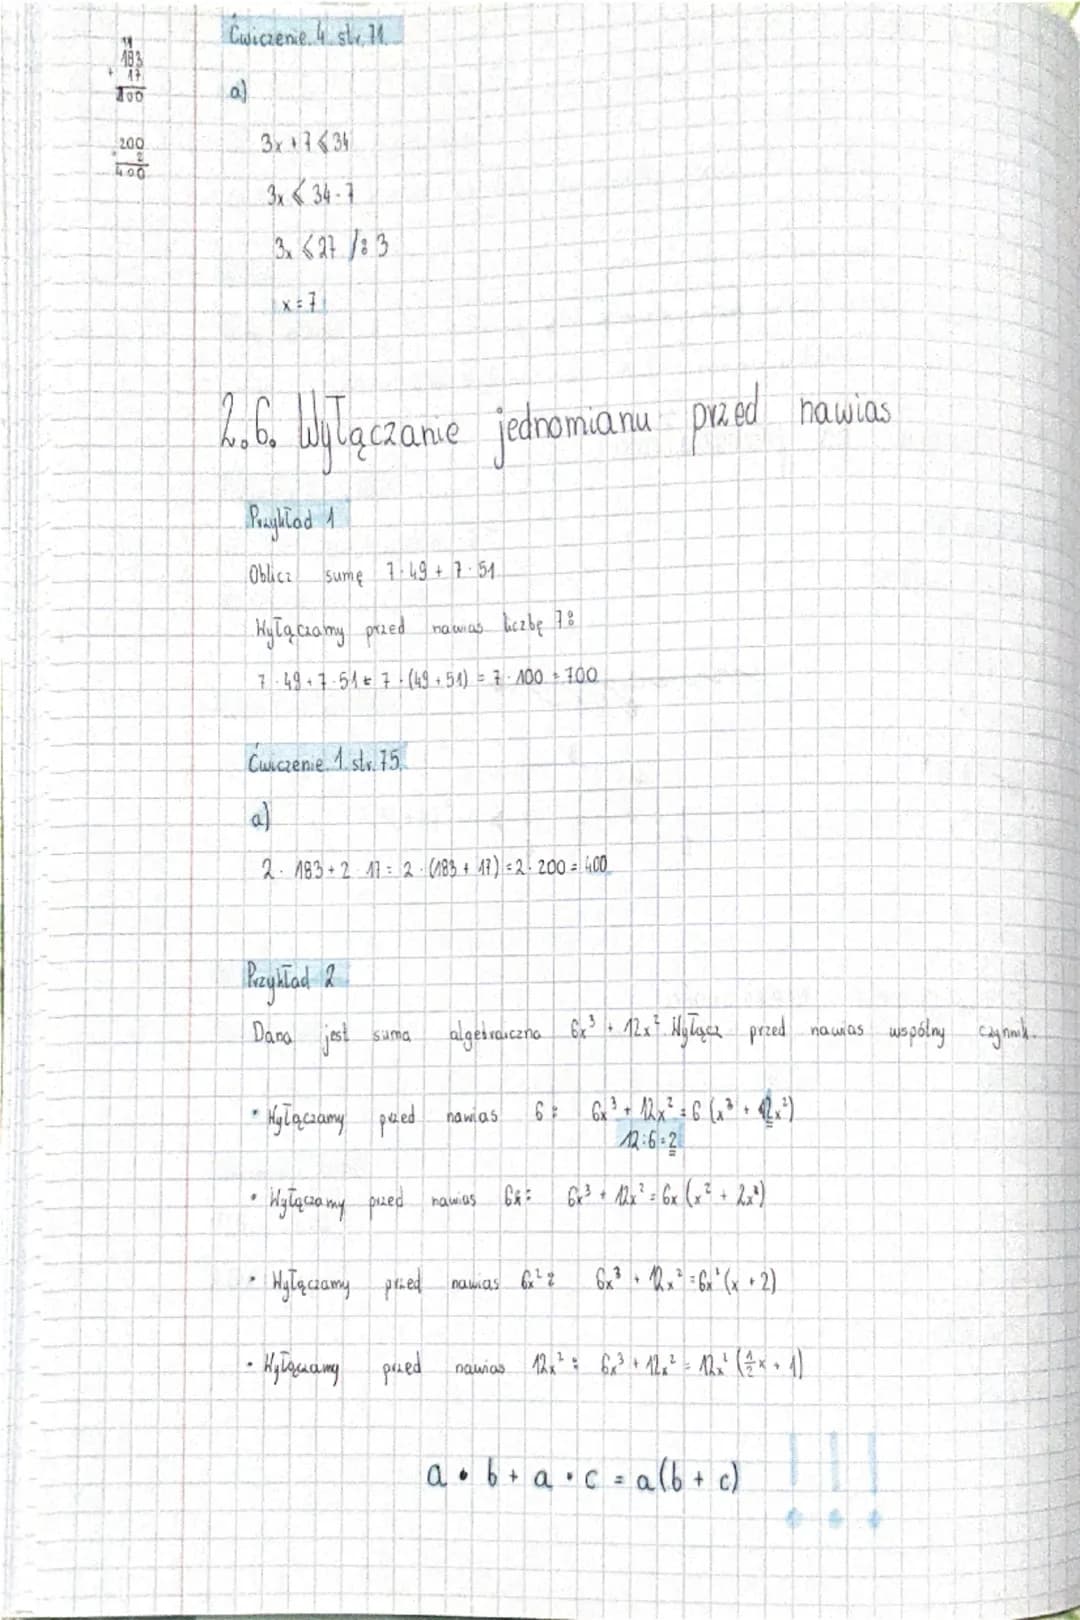 Ćwiczenie. 4. str. 71.
11
183
+ 17
200
200
· 2
400
a)
3x + 7 ⩽ 34
3x ⩽ 34 - 7
3x ⩽ 27 /: 3
x = 7
2.6. Wyłączanie jednomianu przed nawias
Przykład 1
Oblicz sumę 7 · 49 + 7 · 51
Wyłączamy przed nawias liczbę 7:
7 · 49 + 7 · 51 = 7 · (49 + 51) = 7 · 100 = 700
Ćwiczenie. 1. str. 75.
a)
2 · 183 + 2 · 17 = 2 · (183 + 17) = 2 · 200 = 400
Przykład 2
Dana jest suma algebraiczna 6x³ + 12x². Wyłącz przed nawias wspólny czynnik.
• Wyłączamy przed nawias 6: 6x³ + 12x² = 6 (x³ + 2x²)
12:6=2
• Wyłączamy przed nawias 6x: 6x³ + 12x² = 6x (x² + 2x)
• Wyłączamy przed nawias 6x²: 6x³ + 12x² = 6x² (x + 2)
• Wyłączamy przed nawias 12x²: 6x³ + 12x² = 12x² (½x + 1)
a · b + a · c = a(b + c) !!!